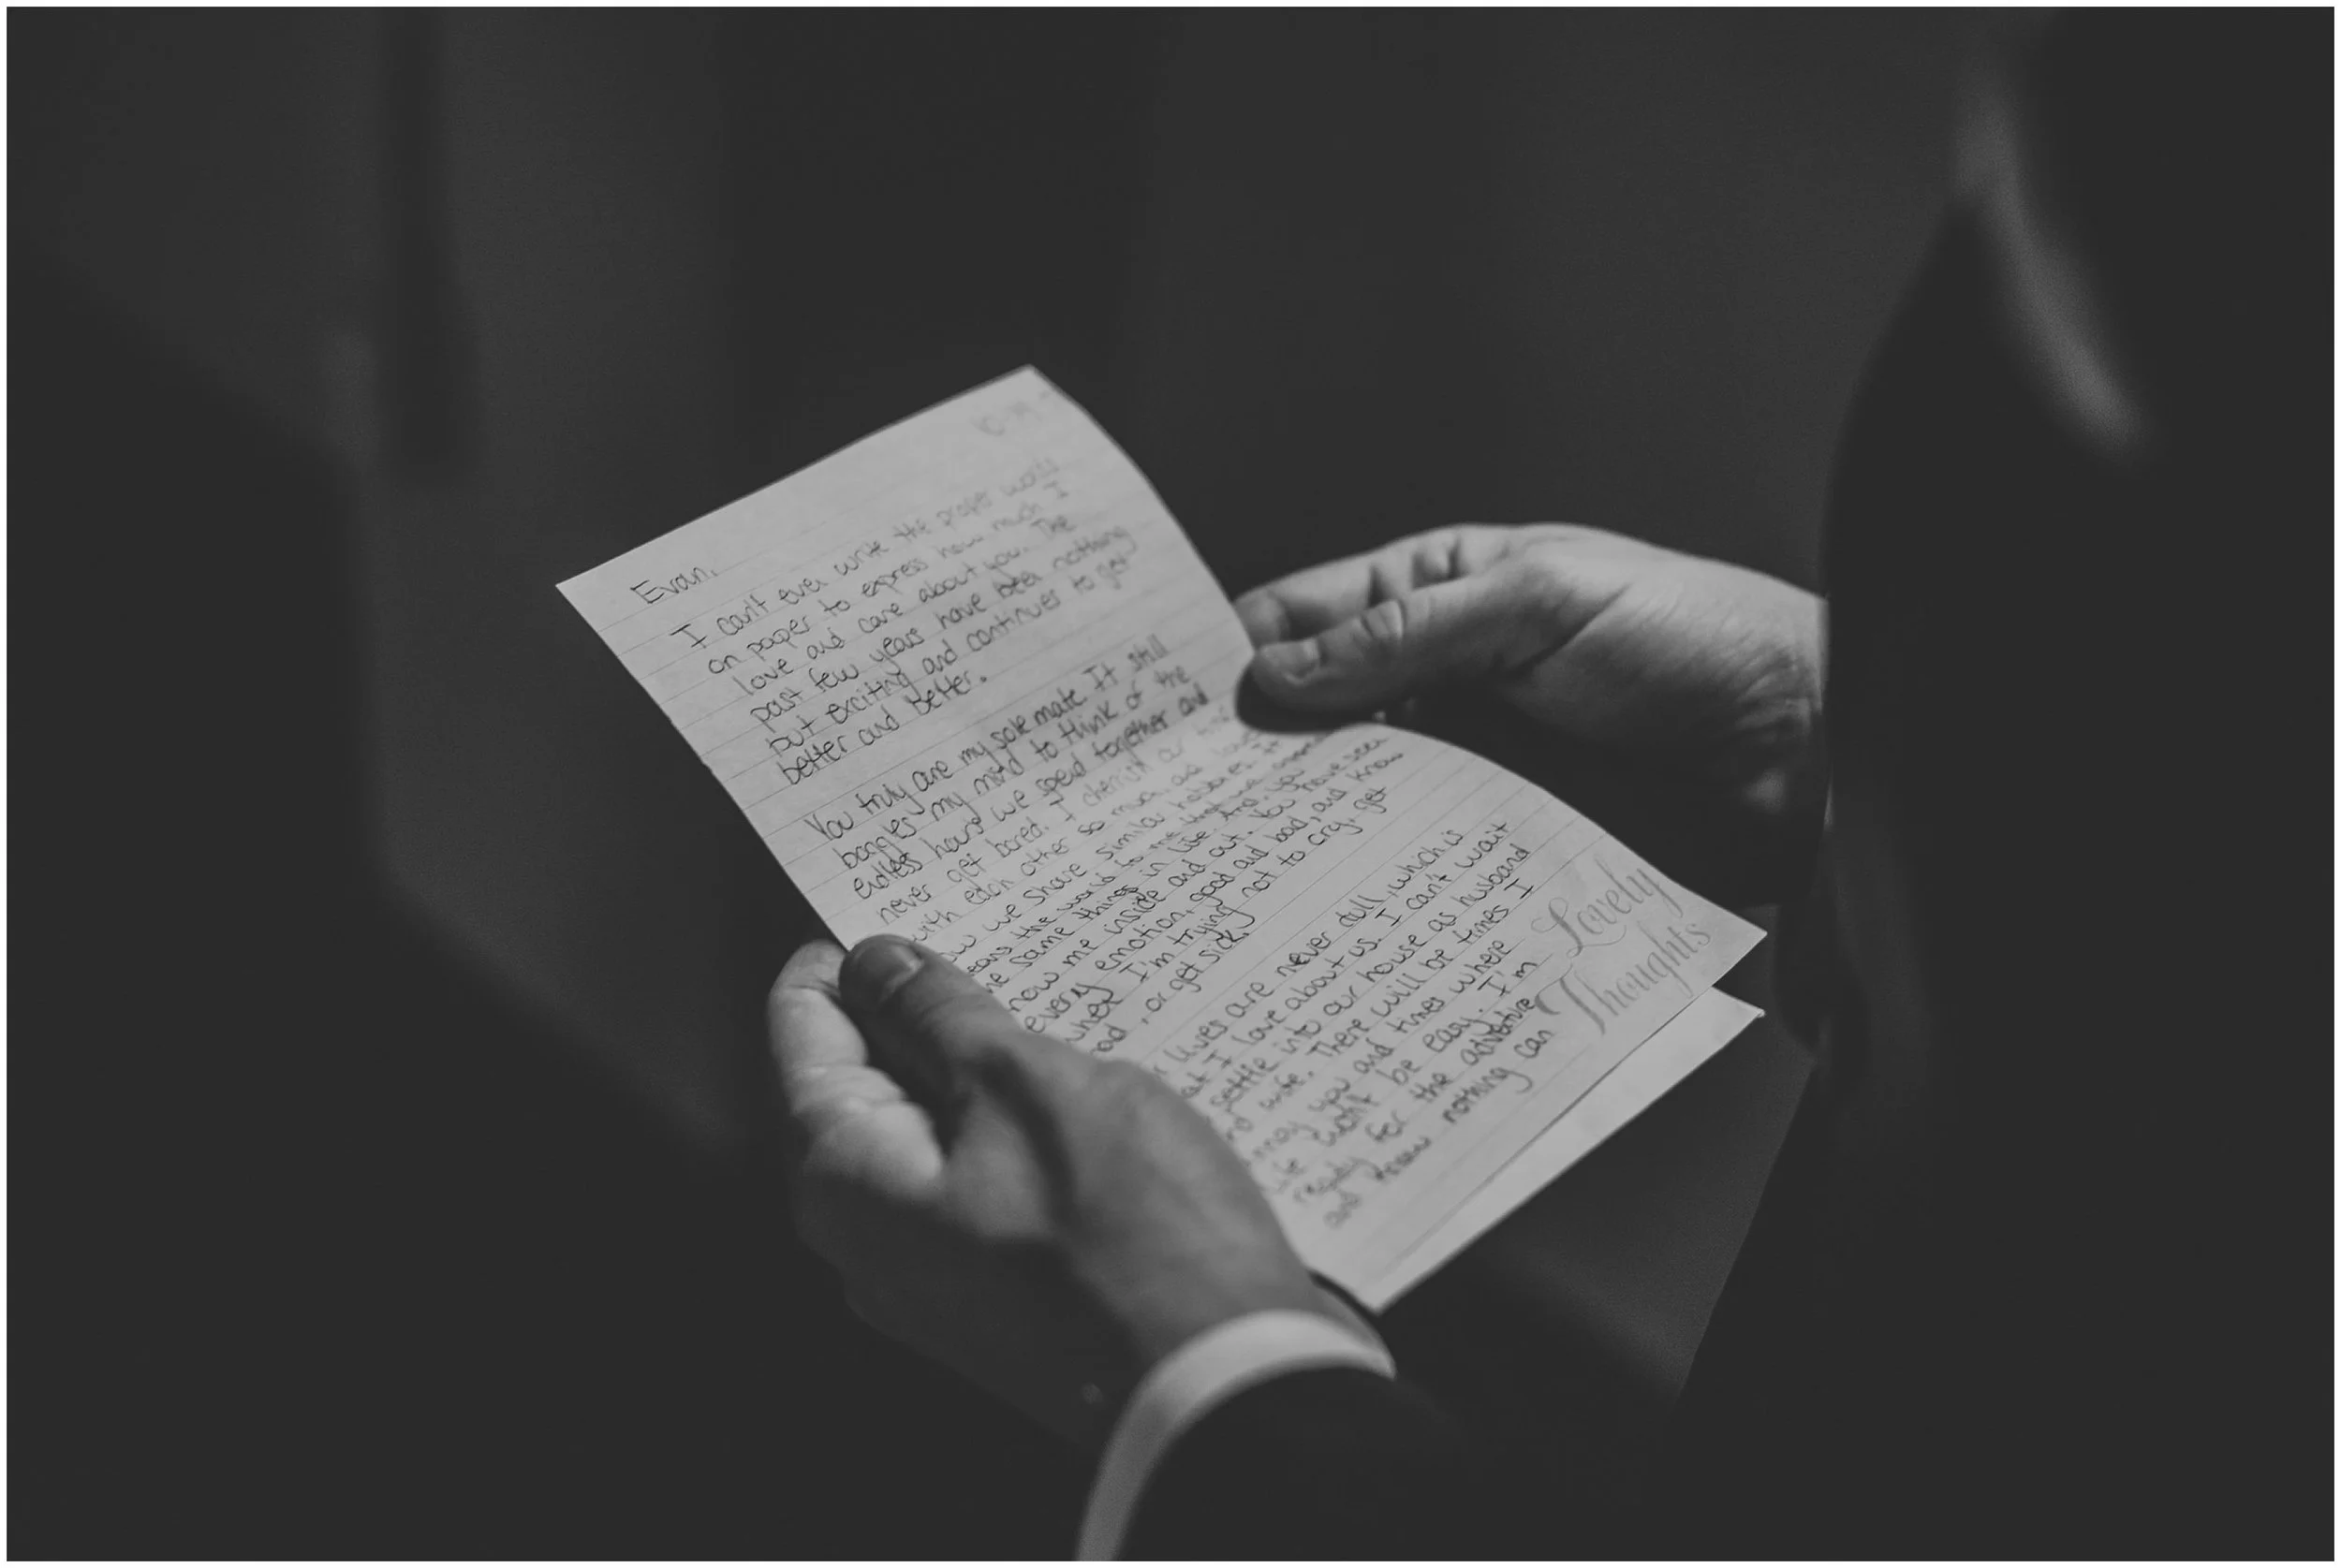 10-19-
Evan,
I can't ever write the proper words
on paper to express how much I
love and care about you. The
past few years have been nothing
but exciting and continues to get
better and better.
You truly are my sole mate. It still
boggles my mind to think of the
endless hours we spend together and
never get bored. I cherish our time
with each other so much, as
how we share similar hobbies. It
means the world to me that we
the same things in life. And, you
know me inside and out. You have seen
every emotion, good and bad, and know
when I'm trying not to cry, get
mad, or get sick.
lives are never dull, which is
I love about us. I can't wait
settle into our house as husband
and wife. There will be times I
annoy you and times where
life won't be easy. I'm
ready for the adventure
and know nothing can
Lovely
Thoughts